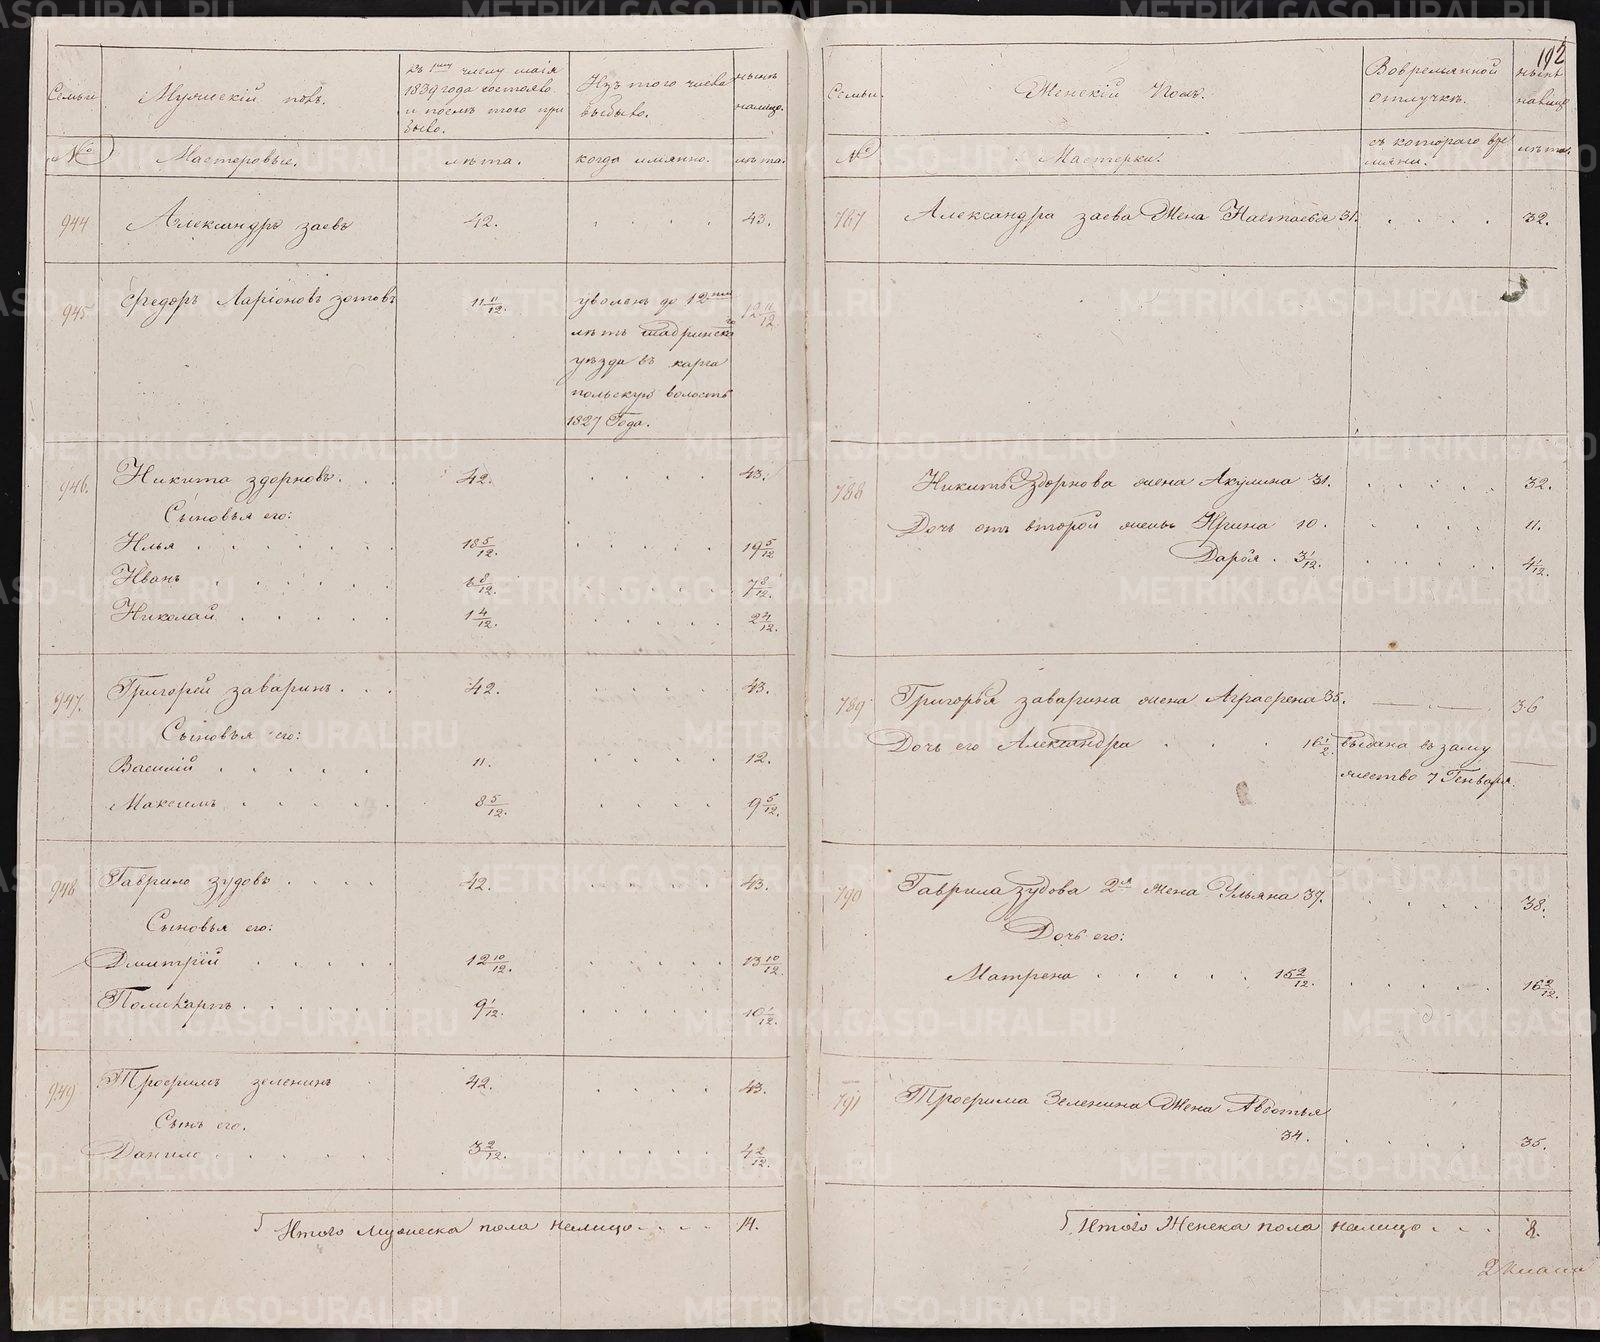 192
Семьи
Мужескій полъ.
Къ 1му числу маія
1839 года состояло
и послѣ того при
было.
Изъ того числа
выбыло.
нынѣ
налицо.
№
Мастеровые.
лѣта.
когда имянно.
лѣта.
944 Александръ заевъ 42. 43.
945 Федоръ Ларіоновъ зотовъ 11 11/12. уволенъ до 12ти 12 11/12
лѣтъ шадринскаго
уѣзда въ карга
польскую волость
1827 Года.
946. Никита здорновъ. 42. 43.
Сыновья его:
Илья 18 5/12. 19 5/12
Иванъ 6 8/12. 7 8/12.
Николай 1 4/12. 2 4/12.
947. Григорей заваринъ. 42. 43.
Сыновья его:
Василій 11. 12.
Максимъ 8 5/12. 9 5/12.
948 Гаврило зудовъ 42. 43.
Сыновья его:
Дмитрій 12 10/12. 13 10/12
Поликарпъ 9 1/12. 10 1/12.
949 Трофимъ зеленинъ 42. 43.
Сынъ его.
Данило 3 2/12. 4 2/12.
Итого Мужеска пола налицо 14.
Семьи.
Женскій Полъ.
Вовремянной
отлучкѣ.
нынѣ
налицо
№
Мастерки.
съ котораго вре
мяни.
лѣта.
787 Александра заева Жена Настасья 31. 32.
788 Никиты Здорнова жена Акулина 31. 32.
Дочь отъ второй жены Ирина 10. 11.
Дарья. 3 1/12. 4 1/12.
789 Григорья заварина жена Аграфена 35. 36
Дочь его Александра 16 1/2. выдана въ заму
жество 7 Генваря.
790 Гаврила зудова 2я жена Ульяна 37. 38.
Дочь его:
Матрена 15 2/12. 16 2/12.
791 Трофима Зеленина Жена Авдотья
34. 35.
Итого Женска пола налицо 8.
METRIKI.GASO-URAL.RU